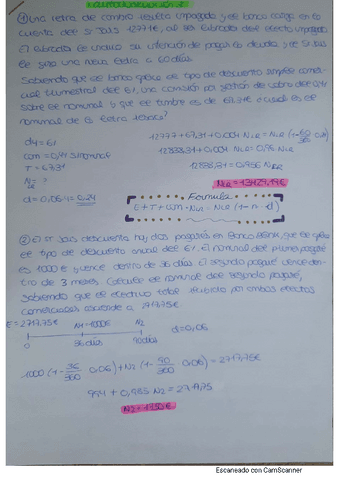 ① Una letra de cambio resulta impagada y el banco carga en la
cuenta del Sr Sais 12777€, al ser librador del efecto impagado.
El librado le indica su intención de pagar la deuda y el Sr Sais
le gira una nueva letra a 60 días.
Sabiendo que el banco aplica un tipo de descuento simple comer-
cial trimestral del 6%, una comisión por gestión de cobro del 0.4%
sobre el nominal y que el timbre es de 67.31€ ¿cuál es el
nominal de la letra
d4 = 6%
com = 0,4% s/nominal
T = 67.31
N = ?
d = 0,06·4 = 0.24
12777 + 67,31 + 0.004 NLR = NLR (1 - 60/360 0.24)
0.004 NLR = 0.96 NLR
= 0.956 NLR
NLR = 13429,19€
Formula
E + T + com = NLR (1 - n · d)
② El Sr Sais descuenta hoy dos pagarés en Banco que le aplica
el tipo de descuento anual del 6%. El nominal del primer pagaré
es 1000€ y vence dentro de 36 días. El segundo pagaré vence den-
tro de 3 meses. Calcular el nominal del segundo pagaré,
sabiendo que el efectivo total recibido por ambos efectos
comerciales asciende a 2717.75€
E = 2717.75€ N1 = 1000€ N2
d = 0,06
0 36 días 90 días
1000 (1 - 36/360 0.06) + N2 (1 - 90/360 0.06) = 2717,75€
994 + 0,985 N2 = 2717,75
N2 = 1750€
Escaneado con CamScanner